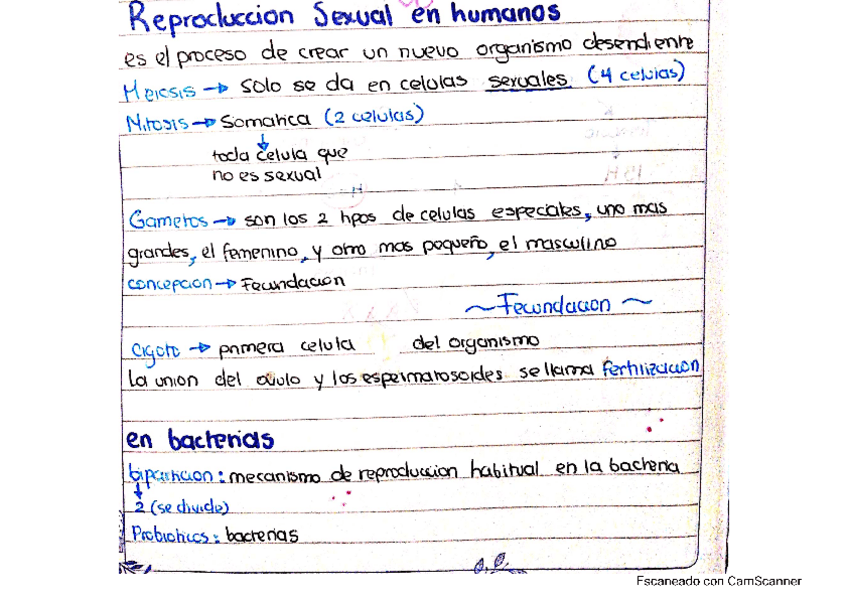 Reproduccion Sexual en humanos
es el proceso de crear un nuevo organismo desendiente
Meiosis → Solo se da en celulas sexuales (4 celulas)
Mitosis → Somatica (2 celulas)
↓
toda celula que
no es sexual
Gametos → son los 2 tipos de celulas especiales, uno mas
grandes, el femenino, y otro mas pequeño, el masculino
concepcion → Fecundacion
~ Fecundacion ~
Cigoto → primera celula del organismo
la union del ovulo y los espermatosoides se llama fertilizacion
en bacterias
biparticion: mecanismo de reproduccion habitual en la bacteria
↓
2 (se divide)
Probioticos: bacterias
Escaneado con CamScanner